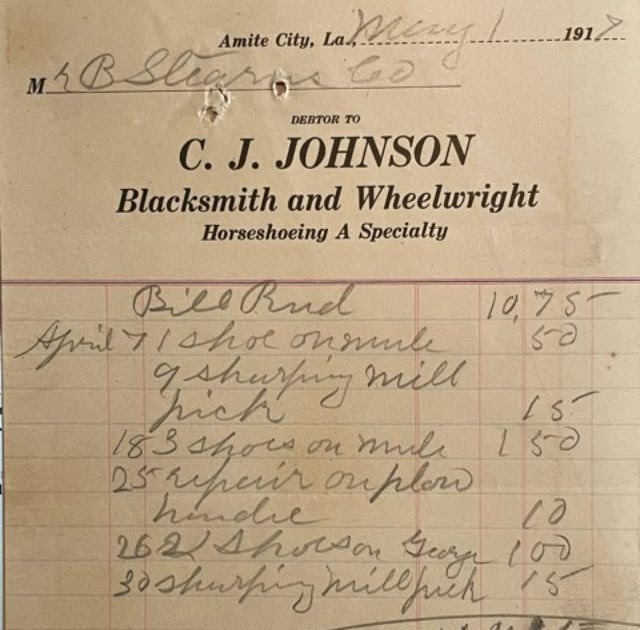 Amite City, La., May 1 1917
M r B Stearns Co
DEBTOR TO
C. J. JOHNSON
Blacksmith and Wheelwright
Horseshoeing A Specialty
Bill Rend 10,75
April 7 1 shoe on mule 50
9 sharping mill
pick 15
18 3 shoes on mule 1 50
25 repair on plow
handle 10
26 2 shoes on George 1 00
30 sharping mill pick 15